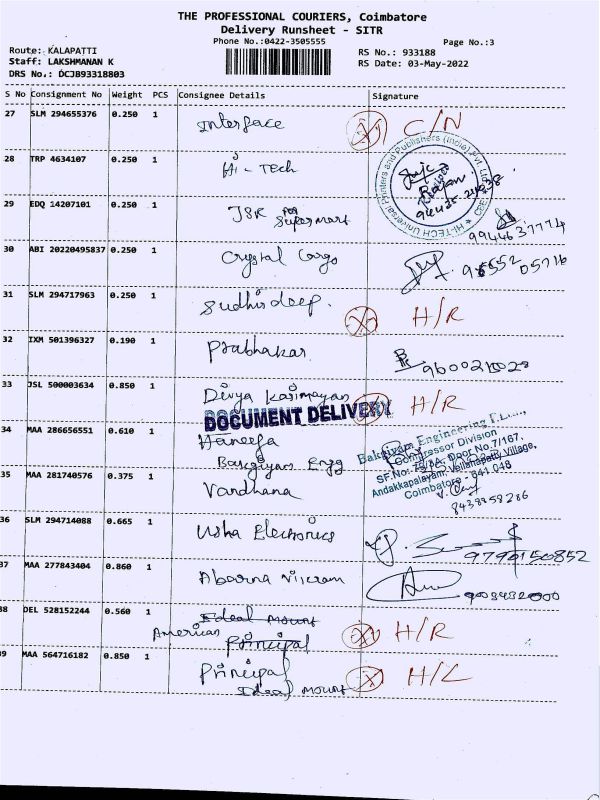 THE PROFESSIONAL COURIERS, Coimbatore
Delivery Runsheet - SITR
Phone No.:0422-3505555
Page No.:3
Route: KALAPATTI
RS No.: 933188
Staff: LAKSHMANAN K
RS Date: 03-May-2022
DRS No.: OCJB93318803
S No Consignment No Weight PCS Consignee Details Signature
27 SLM 294655376 0.250 1 Interface C/N
28 TRP 4634107 0.250 1 Hi-Tech
Hi-TECH Universal Printers and Publishers (India) Pvt. Ltd. CBE
29 EDQ 14207101 0.250 1 JSR Supermart
9944637774
30 ABI 20220495837 0.250 1 Crystal Cargo
31 SLM 294717963 0.250 1 Sudhirdeep. H/R
32 IXM 501396327 0.190 1 Prabhakar.
33 JSL 500003634 0.850 1 Divya Karimayan H/R
DOCUMENT DELIVERY
34 MAA 286656551 0.610 1 Haneefa
Bakgiyam Engg
Bakgiyam Engineering
Compressor Division
Door No.7/167,
Andakkapalayam, Vellanapatty Village,
Coimbatore - 641 048
35 MAA 281740576 0.375 1 Vardhana
8438958286
36 SLM 294714088 0.665 1 Usha Electronics
9790150852
37 MAA 277843404 0.860 1 Abarna Vikram
38 DEL 528152244 0.560 1 Ideal mount
American Principal H/R
39 MAA 564716182 0.850 1 Principal H/L
Ideal mount